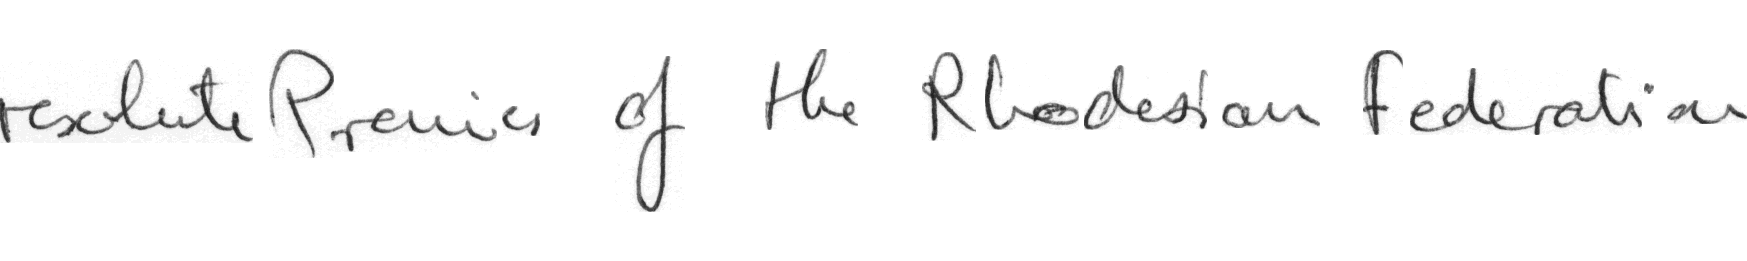 resolute Premier of the Rhodesian Federation